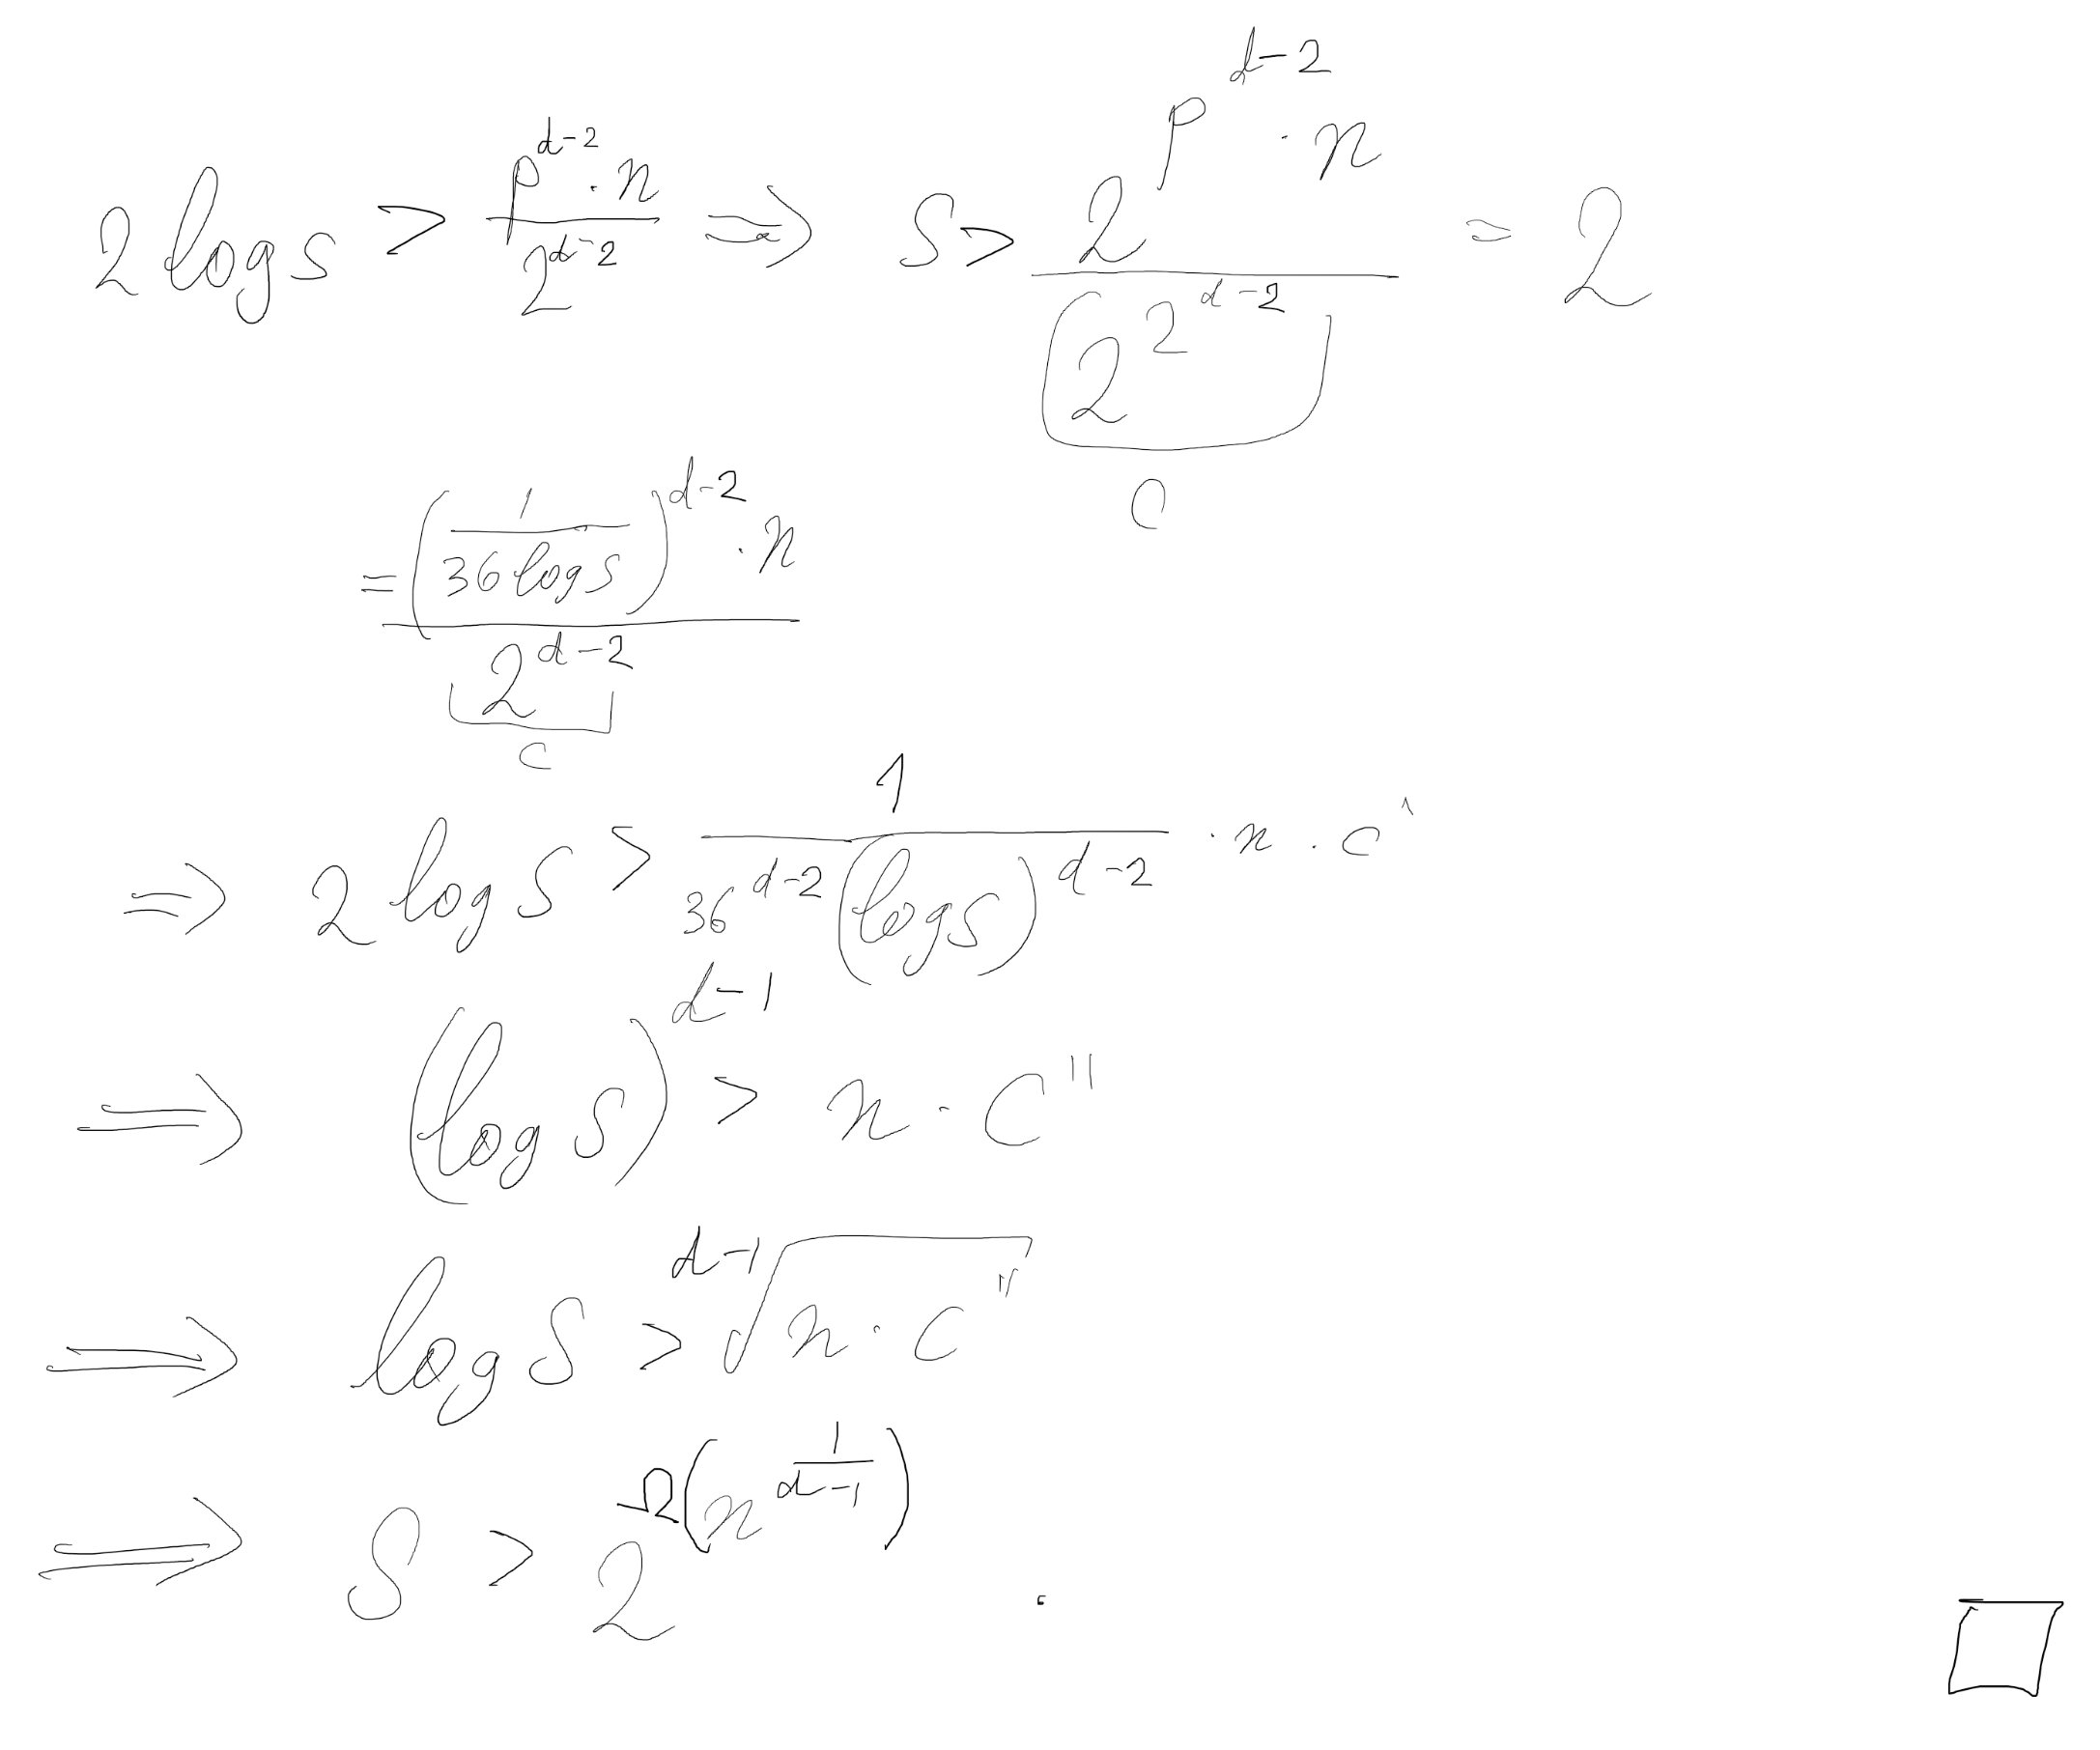 2 log s > p^{d-2} · n / 2^{d-2} ⇒ S > 2^{p^{d-2} · n} / 2^{2^{d-2}} = 2
C
= (1 / 36 log s)^{d-2} · n / 2^{d-2}
C
⇒ 2 log S > 1 / 36^{d-2} (log s)^{d-2} · n · C'
⇒ (log S)^{d-1} > n · C''
⇒ log S > \sqrt[d-1]{n · C''}
⇒ S > 2^{Ω(n^{1/(d-1)})} . □